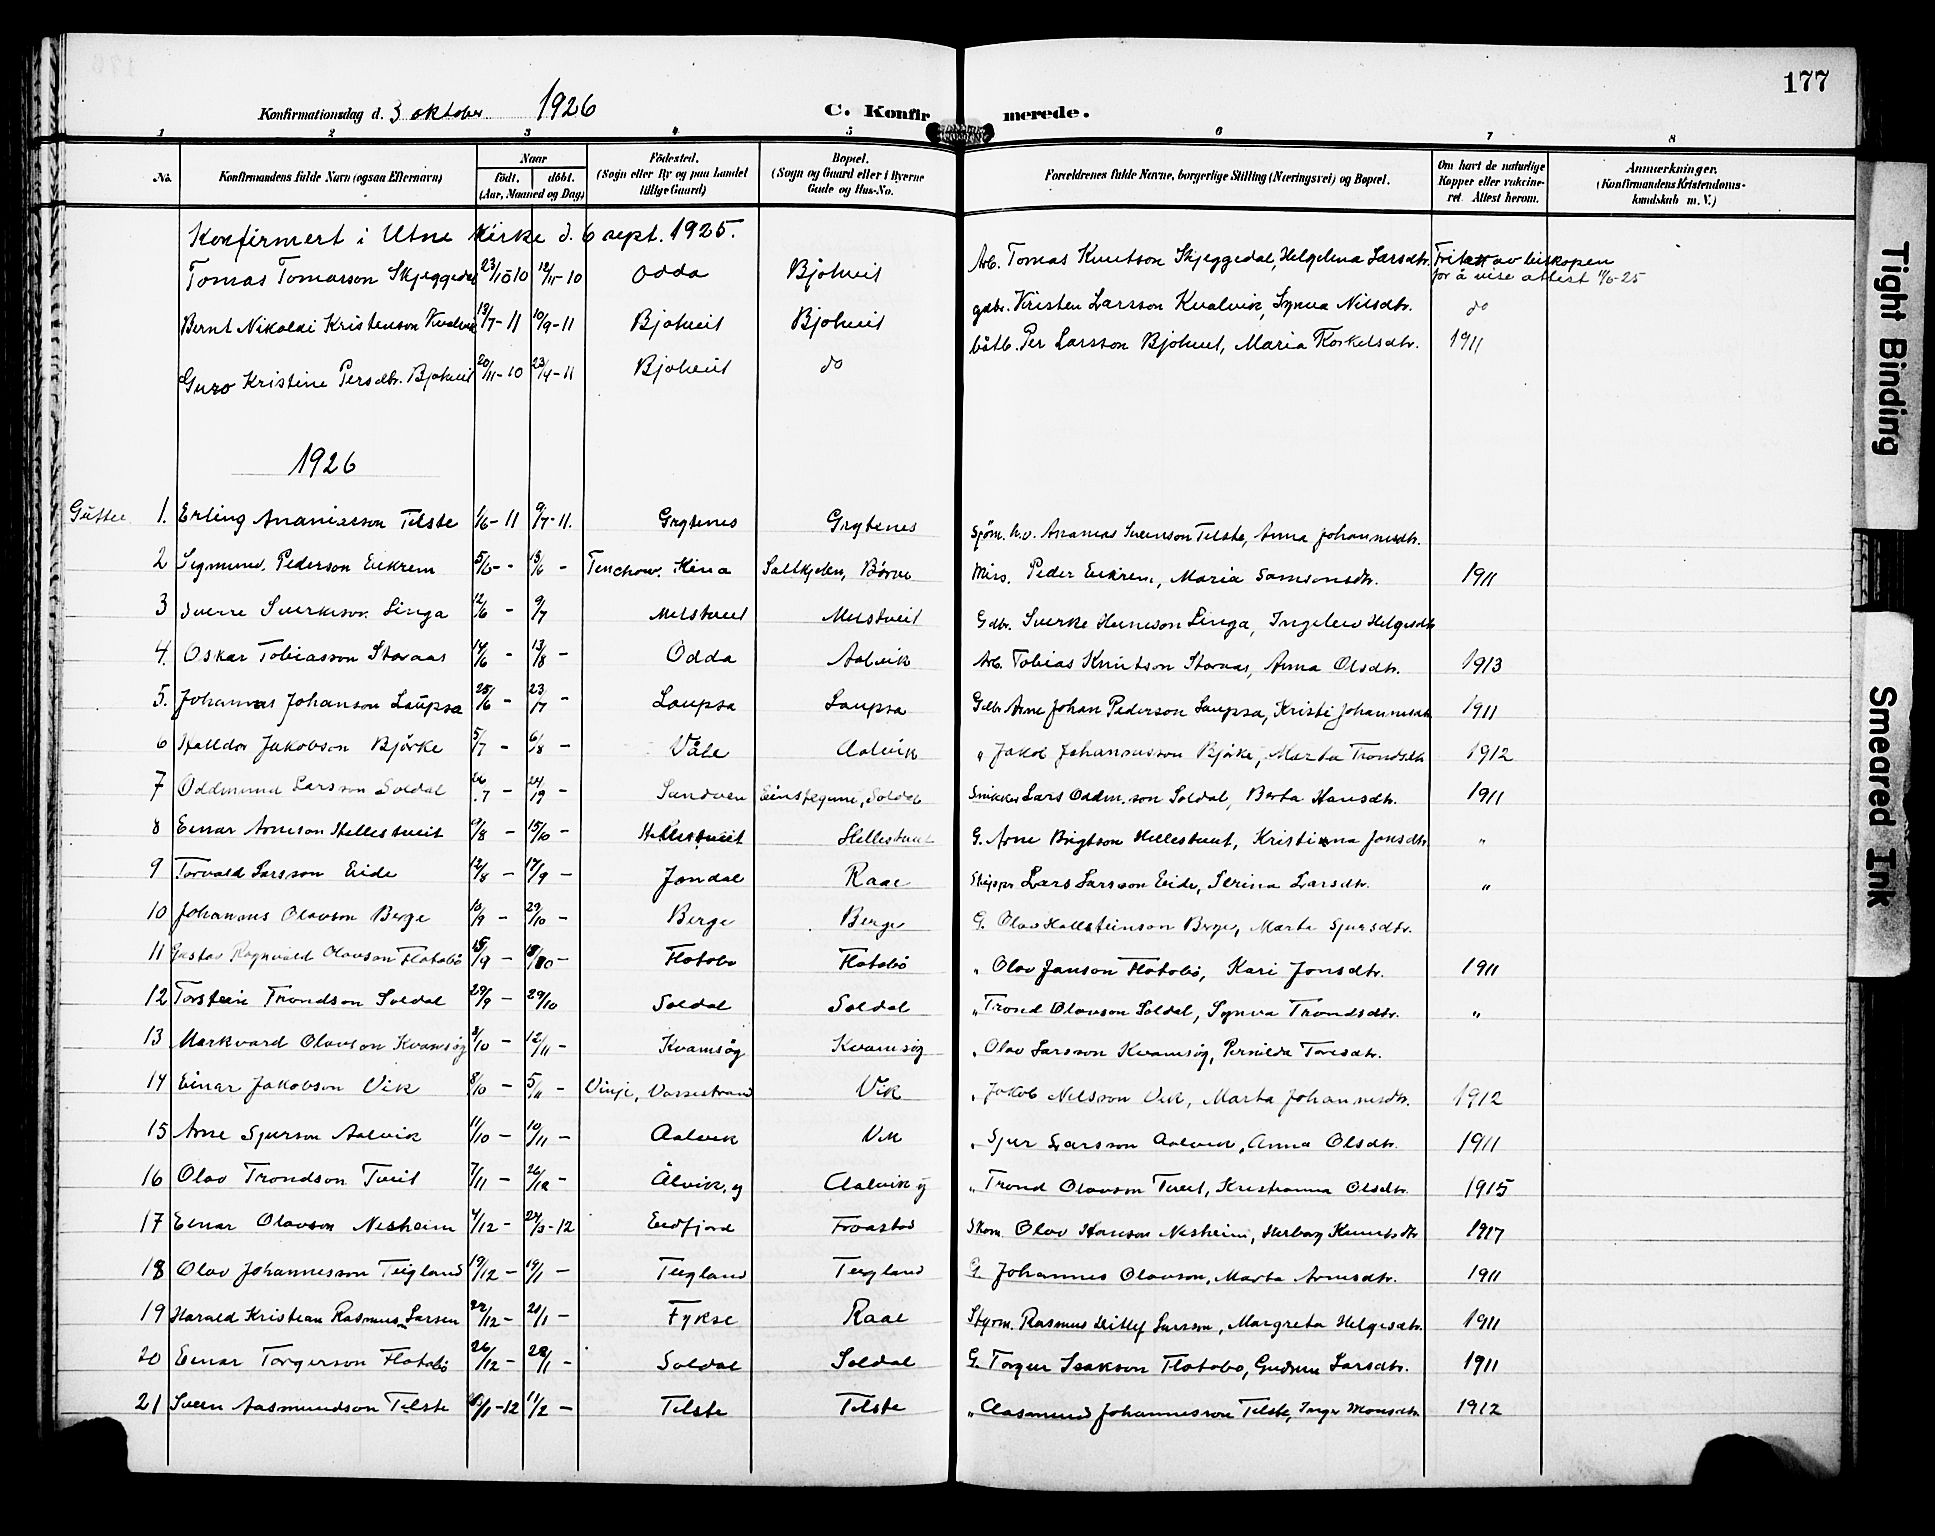 177
Konfirmationsdag d. 3 oktober 1926 C. Konfirmerede.
1 2 3 4 5 6 7 8
No. Konfirmandens fulde Navn (ogsaa Efternavn) Naar født. døbt. (Aar, Maaned og Dag) Fødested. (Sogn eller By og paa Landet tillige Gaard) Bopæl. (Sogn og Gaard eller i Byerne Gade og Hus-No. Forældrenes fulde Navne, borgerlige Stilling (Næringsvei) og Bopæl. Om havt de naturlige Kopper eller vaccineret. Attest herom. Anmærkninger. (Konfirmandens Kristendomskundskab m. V.)
Konfirmert i Utne Kirke d. 6 sept. 1925.
Tomas Tomasson Skjeggedal 23/10-10 12/11-10 Odda Bjotveit Arb. Tomas Knutson Skjeggedal, Helgelena Larsdtr. Fritatt av biskopen for å vise attest 11/6-25
Bernt Nikolai Kristenson Kvalvik 13/7-11 10/9-11 Bjotveit Bjotveit gdbr. Kristen Larsson Kvalvik, Synva Nilsdtr. do
Guro Kristine Persdtr. Bjotveit 20/11-10 23/4-11 Bjotveit do båtb. Per Larsson Bjotveit, Maria Torkelsdtr. 1911
1926
Gutter 1. Erling Ananiasson Telste 1/6-11 9/7-11. Grytenes Grytenes Sjøm. h.v. Ananias Sveinson Telste, Anna Johannesdtr.
2 Sigmund Pederson Eikrem 5/6-- 18/6 - Tenchow, Kina Saltkjelen, Børve Miss. Peder Eikrem, Maria Samsonsdtr. 1911
3 Sverre Sverkeson Linga 12/6 - 9/7 Melstveit Melstveit Gdbr. Sverke Heineson Linga, Ingeleiv Helgesdtr
4. Oskar Tobiasson Storaas 14/6 - 13/8 - Odda Aalvik Arb. Tobias Knutson Storaas, Anna Olsdtr. 1913
5. Johannes Johanson Laupsa 25/6 - 23/7 - Laupsa Laupsa Gdbr Arne Johan Pederson Laupsa, Kristi Johannesdtr. 1911
6 Halldor Jakobson Bjørke 5/7 - 6/8 - Våle Aalvik " Jakob Johannesson Bjørke, Marta Trondsdtr 1912
7 Oddmund Larsson Soldal 26/7 - 24/9 - Sandven Einstegene, Soldal Snikker Lars Oddm.son Soldal, Berta Hansdtr. 1911
8 Einar Arneson Hellestveit 9/8 - 15/10 - Hellestveit Hellestveit G. Arne Brigtson Hellestveit, Kristianna Jonsdtr. "
9 Torvald Larsson Eide 12/8 - 17/9 - Jondal Raae Skipper Lars Larsson Eide, Serina Larsdtr. "
10 Johannes Olavson Berge 10/9 - 29/10 - Berge Berge G. Olav Hallsteinson Berge, Marta Sjursdtr.
11 Gustav Ragnvald Olavson Flotabø 15/9 - 8/10 - Flotabø Flotabø " Olav Janson Flotabø, Kari Jonsdtr. 1911
12 Torstein Trondson Soldal 29/9 - 29/10 Soldal Soldal " Trond Olavson Soldal, Synva Trondsdtr. "
13 Markvard Olavson Kvamsøy 3/10 - 12/11 - Kvamsøy Kvamsøy " Olav Larsson Kvamsøy, Pernilda Toresdtr.
14 Einar Jakobson Vik 8/10 - 5/11 - Vinje, Vossestrand Vik " Jakob Nelsson Vik, Marta Johannesdtr. 1912
15 Arne Sjurson Aalvik 11/10 - 10/11 - Aalvik Vik " Sjur Larsson Aalvik, Anna Olsdtr. 1911
16 Olav Trondson Tveit 7/11 - 26/12 - Ålvik, y Aalvik y " Trond Olavson Tveit, Kristianna Olsdtr. 1915
17 Einar Olavson Nesheim 4/12 - 24/3-12 Eidfjord Froastad Skom. Olav Hanson Nesheim, Herborg Knutsdtr 1917
18 Olav Johannesson Teigland 19/12 - 14/1 - Teigland Teigland G. Johannes Olavson, Marta Arnesdtr. 1911
19 Harald Kristian Rasmus Larsen 22/12 - 21/1 - Fykse Raae Styrm. Rasmus Ditlef Larsson, Margreta Helgesdtr. 1911
20 Einar Torgerson Flotabø 26/12 - 28/1 - Soldal Soldal G. Torgeir Isakson Flotabø, Gudrun Larsdtr. 1911
21 Svein Aasmundson Telste /1-12 11/2 - Telste Telste " Aasmund Johannesson Telste, Inger Monsdtr. 1912
Tight Binding
Smeared Ink